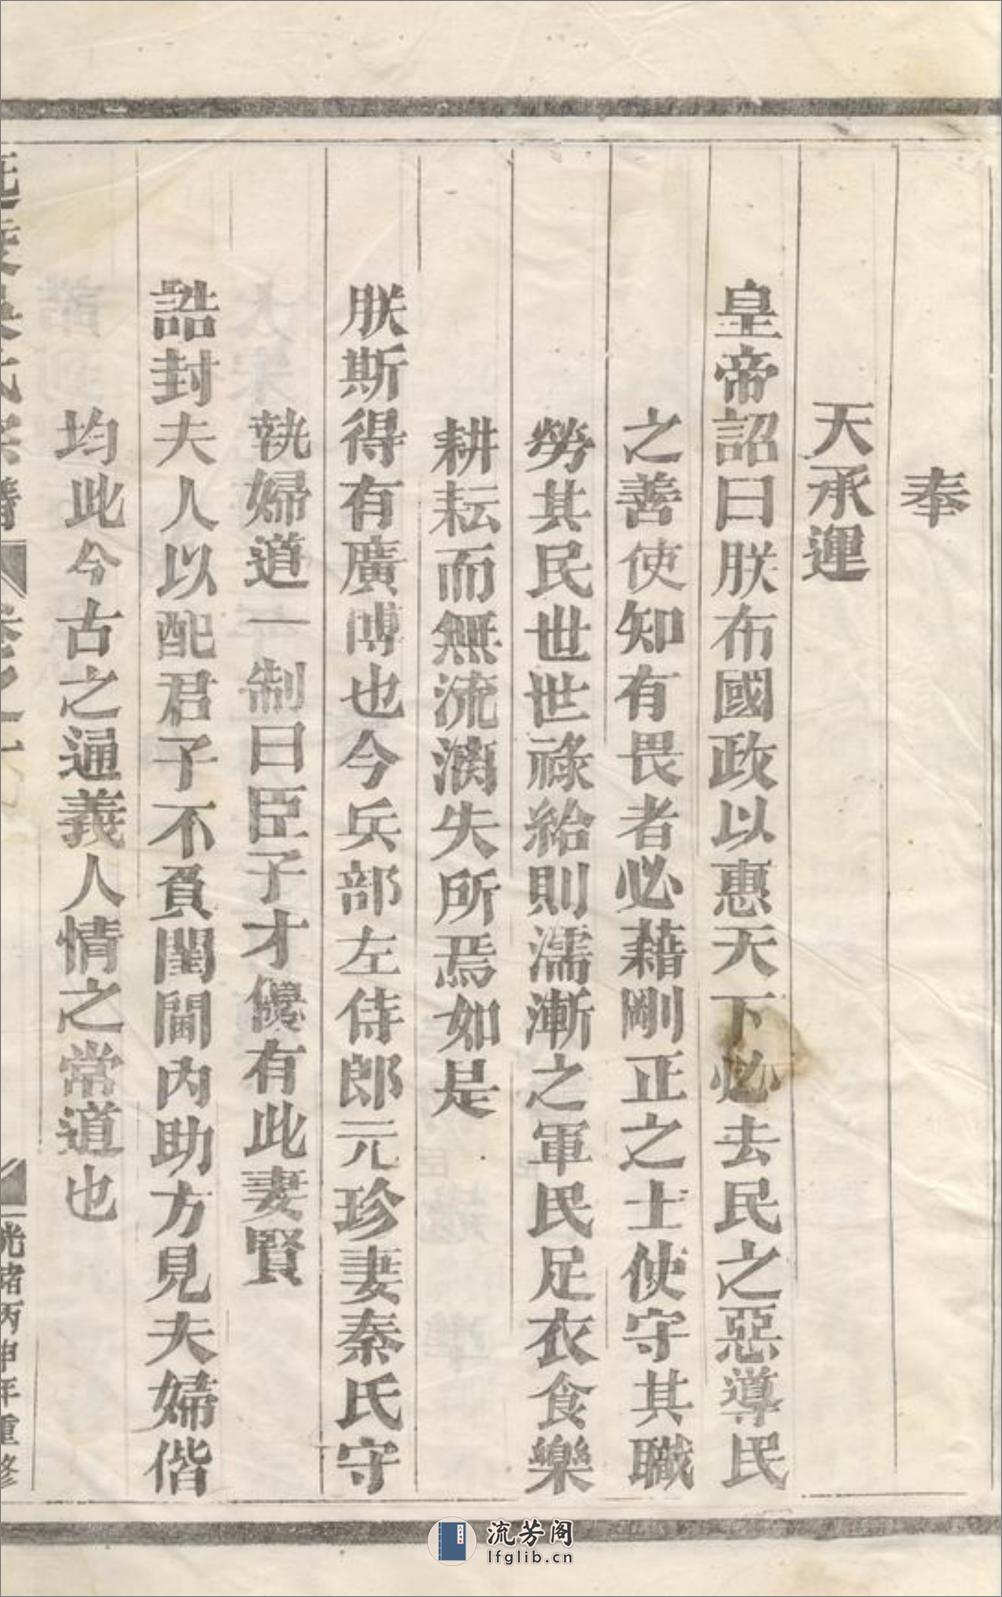 奉
天承運
皇帝詔曰朕布國政以惠天下必去民之惡導民
之善使知有畏者必藉剛正之士使守其職
勞其民世世祿給則濡漸之軍民足衣食樂
耕耘而無流漓失所焉如是
朕斯得有廣博也今兵部左侍郎元珍妻秦氏守
執婦道一制曰臣子才優有此妻賢
誥封夫人以配君子不負閨閫內助方見夫婦偕
均此今古之通義人情之常道也
氏宗譜 卷之一 光緒丙申年重修
流芳阁
lfglib.cn